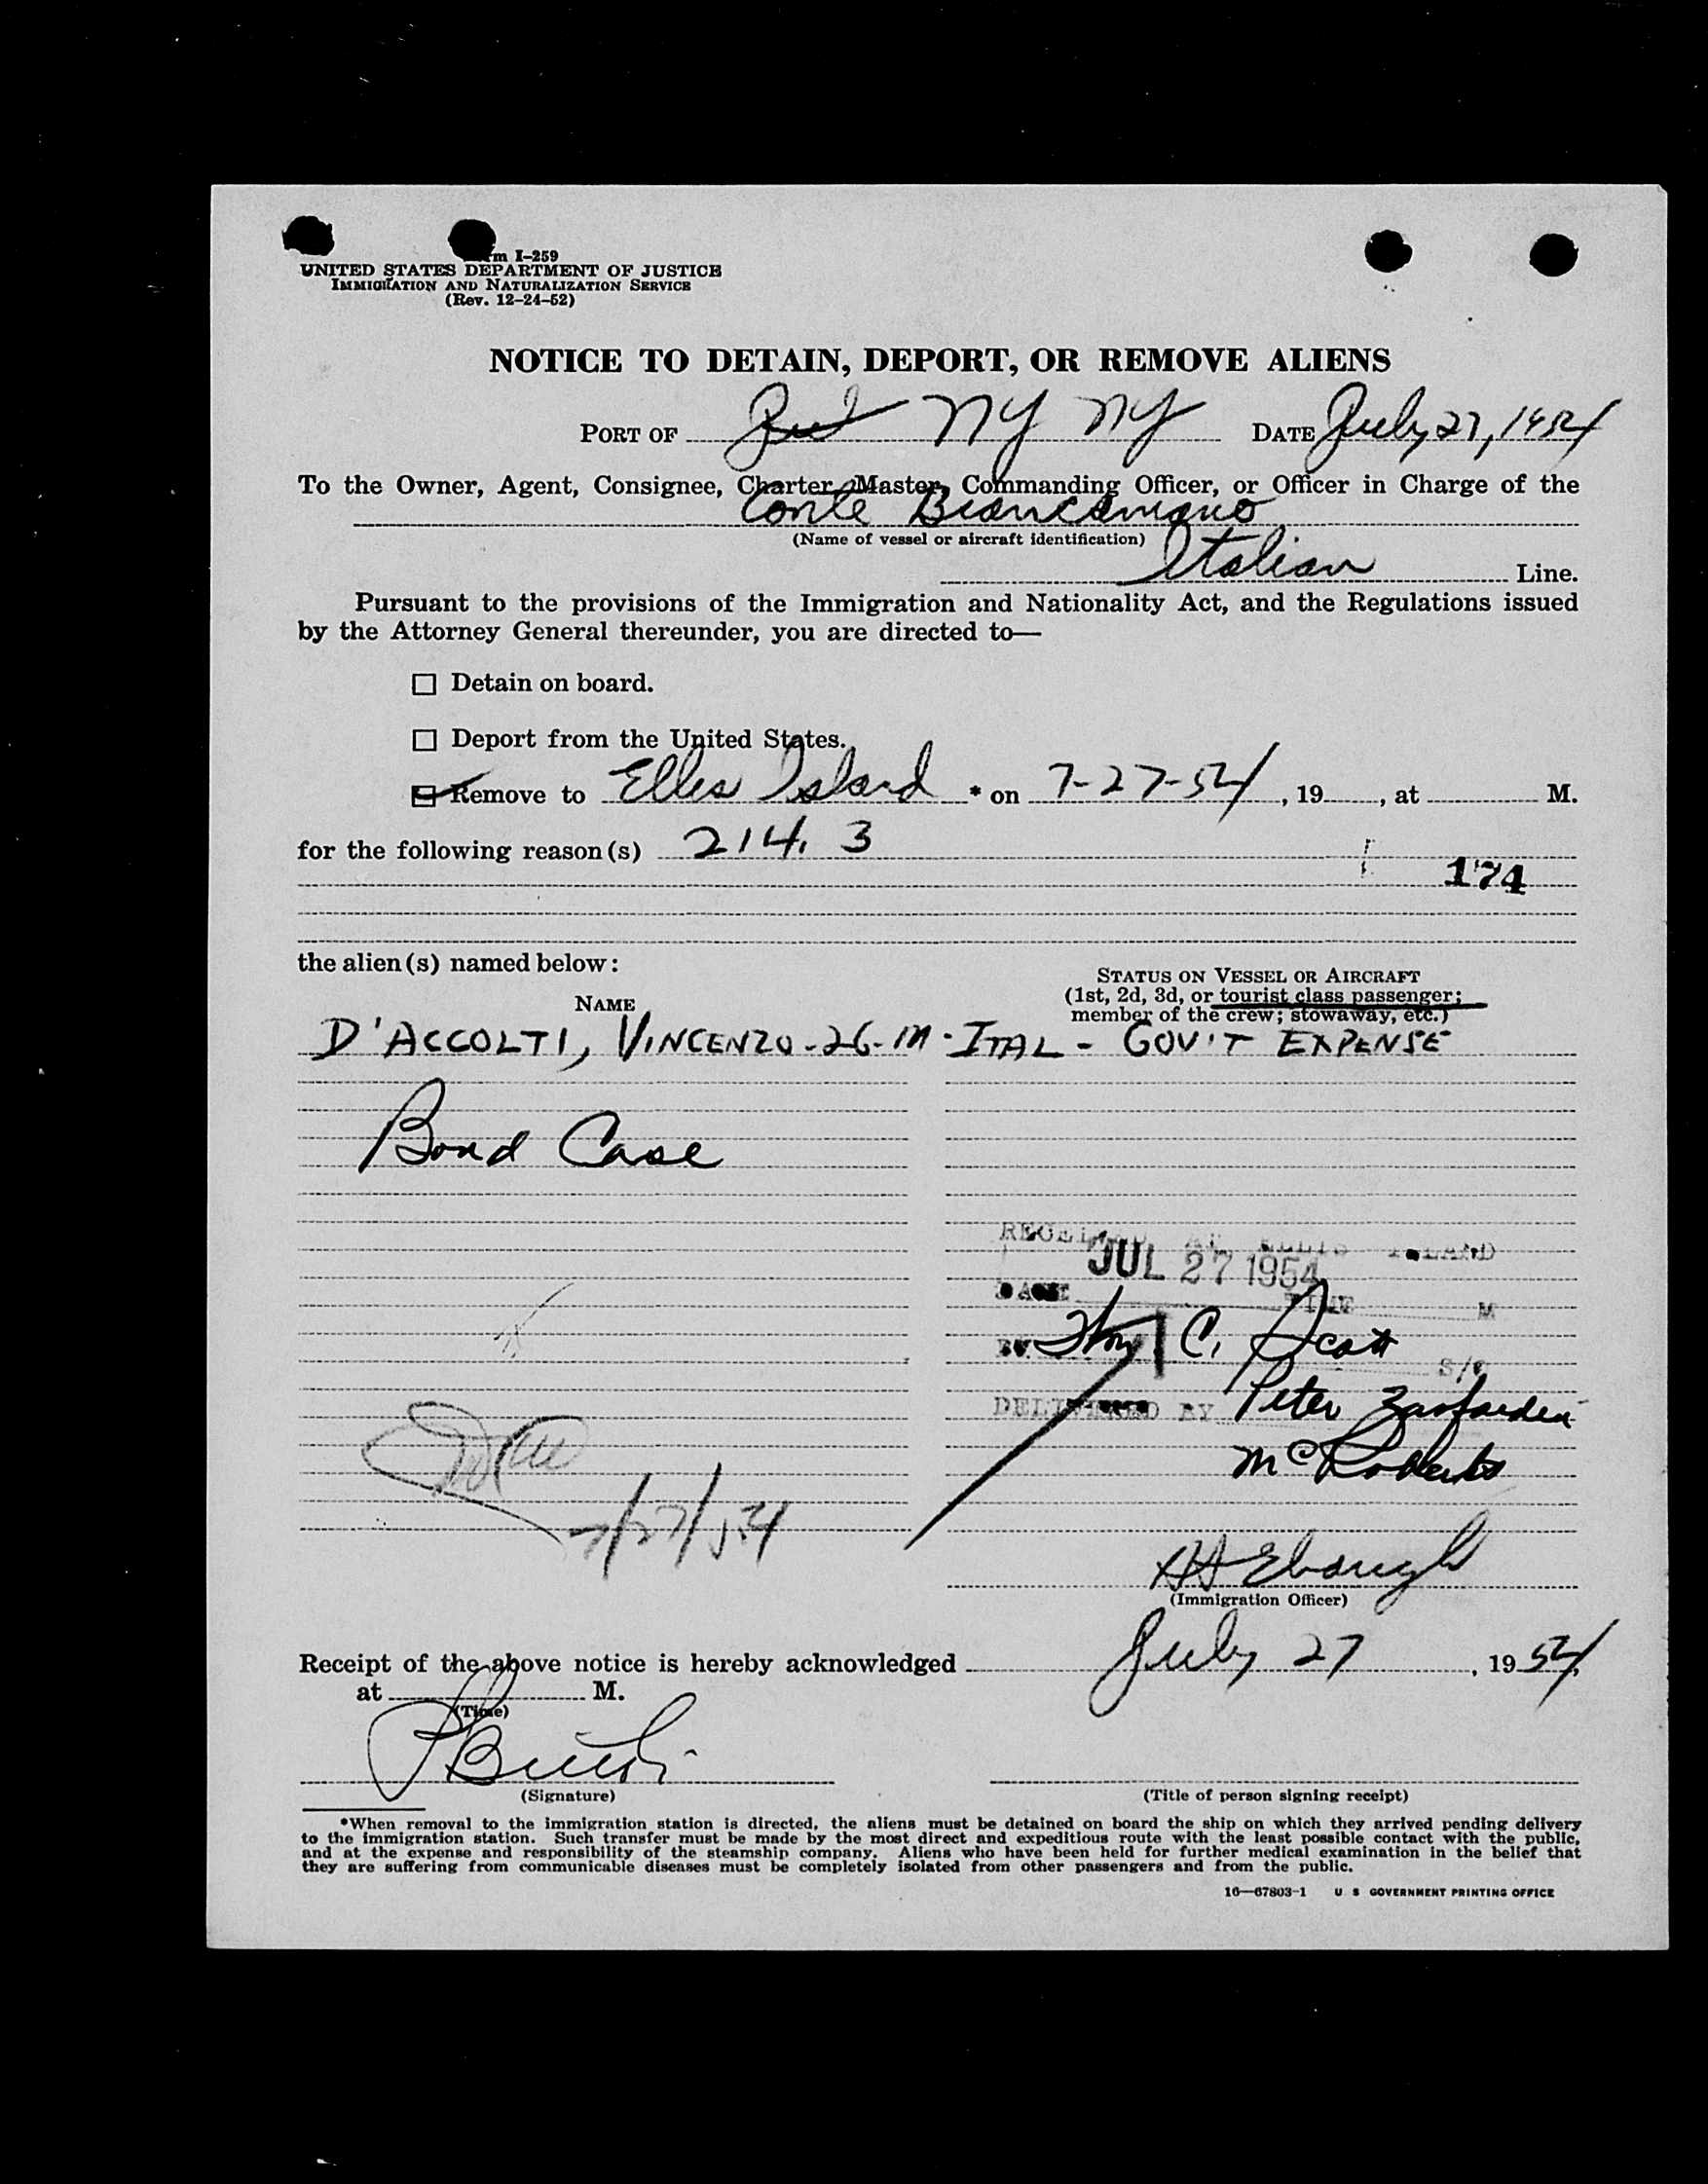 Form I-259
UNITED STATES DEPARTMENT OF JUSTICE
IMMIGRATION AND NATURALIZATION SERVICE
(Rev. 12-24-52)
NOTICE TO DETAIN, DEPORT, OR REMOVE ALIENS
PORT OF NY NY DATE July 27, 1954
To the Owner, Agent, Consignee, Charter, Master, Commanding Officer, or Officer in Charge of the
Conte Biancamano
(Name of vessel or aircraft identification)
Italian Line.
Pursuant to the provisions of the Immigration and Nationality Act, and the Regulations issued
by the Attorney General thereunder, you are directed to—
Detain on board.
Deport from the United States.
Remove to Ellis Island * on 7-27-54, 19, at M.
for the following reason(s) 214. 3
174
the alien(s) named below:
STATUS ON VESSEL OR AIRCRAFT
(1st, 2d, 3d, or tourist class passenger;
member of the crew; stowaway, etc.)
NAME
D'ACCOLTI, VINCENZO - 26 - M - ITAL - GOV'T EXPENSE
Bond Case
RECEIVED AT ELLIS ISLAND
JUL 27 1954
DATE TIME M
BY C. Scott
S/O
DELIVERED BY Peter
McRoberts
7/27/54
HA Ebaugh
(Immigration Officer)
Receipt of the above notice is hereby acknowledged July 27, 1954
at M.
(Time)
(Signature)
(Title of person signing receipt)
*When removal to the immigration station is directed, the aliens must be detained on board the ship on which they arrived pending delivery
to the immigration station. Such transfer must be made by the most direct and expeditious route with the least possible contact with the public,
and at the expense and responsibility of the steamship company. Aliens who have been held for further medical examination in the belief that
they are suffering from communicable diseases must be completely isolated from other passengers and from the public.
16—67803-1 U S GOVERNMENT PRINTING OFFICE